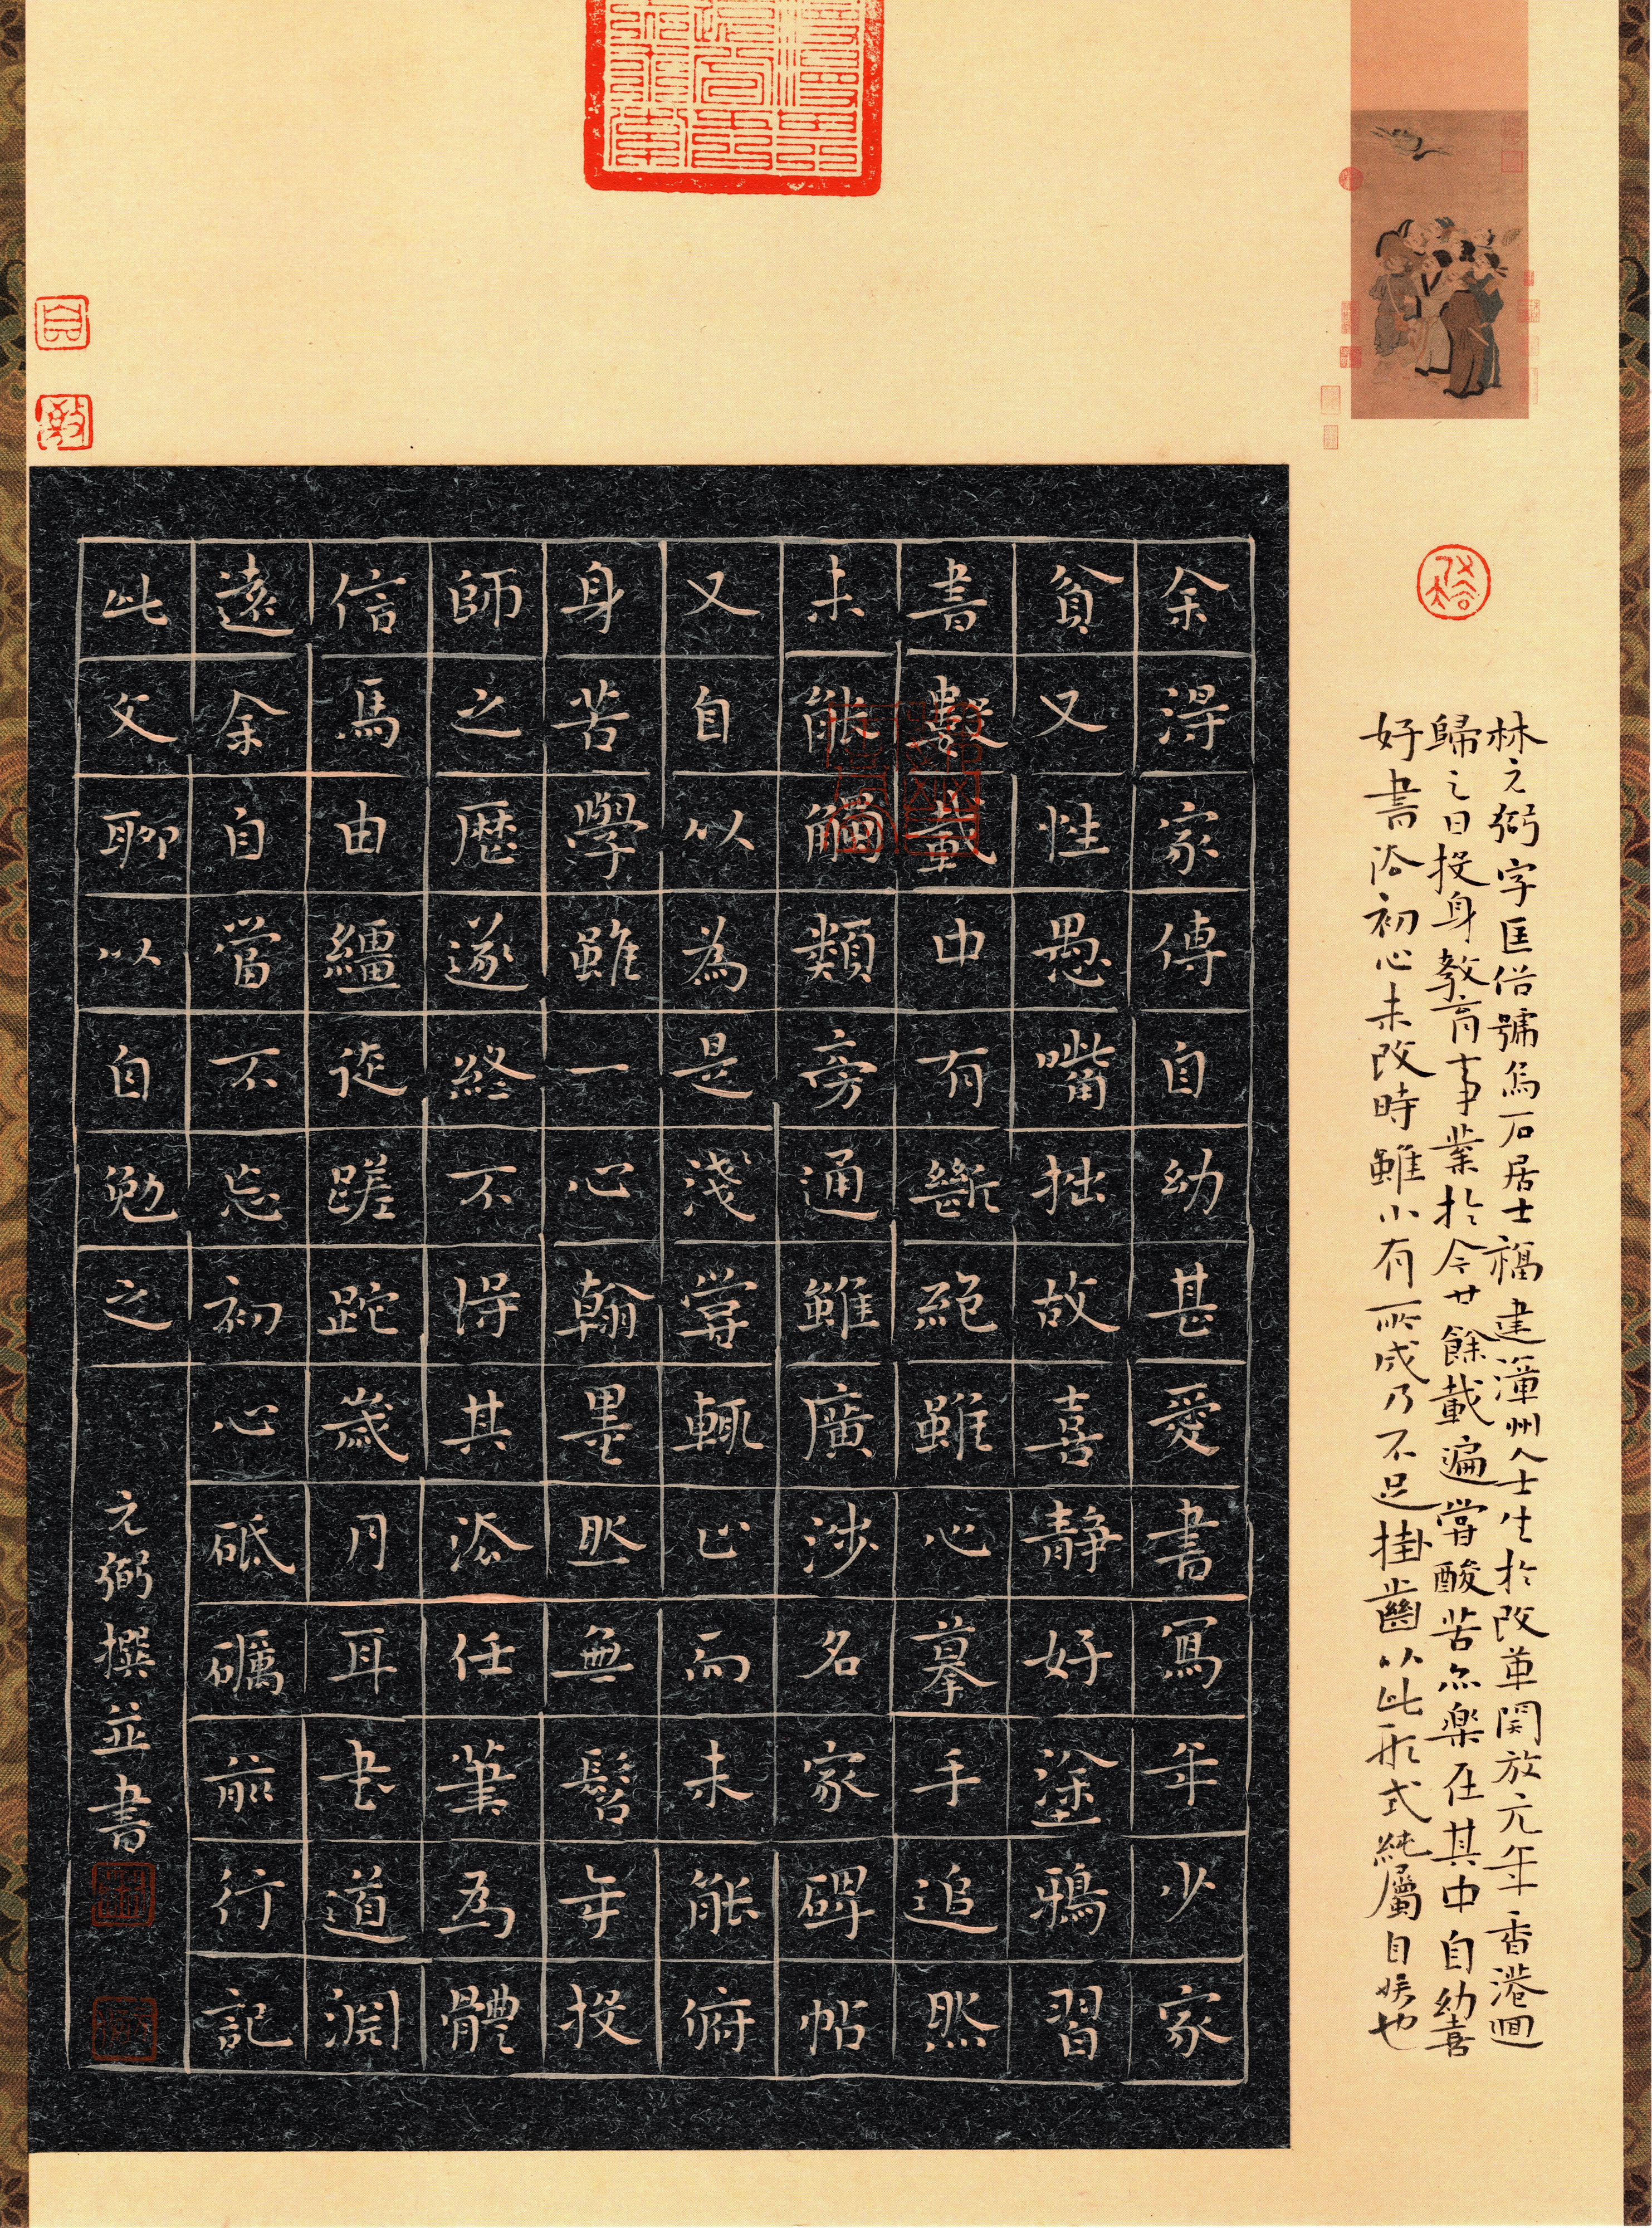 林元弼字匡俗號為石居士福建漳州人士生於改革開放元年香港迴
歸之日投身教育事業於今廿餘載遍嘗酸苦亦樂在其中自幼喜
好書法初心未改時雖小有所成乃不足掛齒以此形式純屬自娛也
余得家傳自幼甚愛書寫年少家
貧又性愚嘴拙故喜靜好塗鴉習
書數載中有斷絕雖心摹手追然
未能觸類旁通雖廣涉名家碑帖
又自以為是淺嘗輒止而未能俯
身苦學雖一心翰墨然無髫年投
師之歷遂終不得其添任筆為體
信馬由繮徒蹉跎歲月耳書道淵
遠余自當不忘初心砥礪前行記
此文聊以自勉之
元弼撰並書